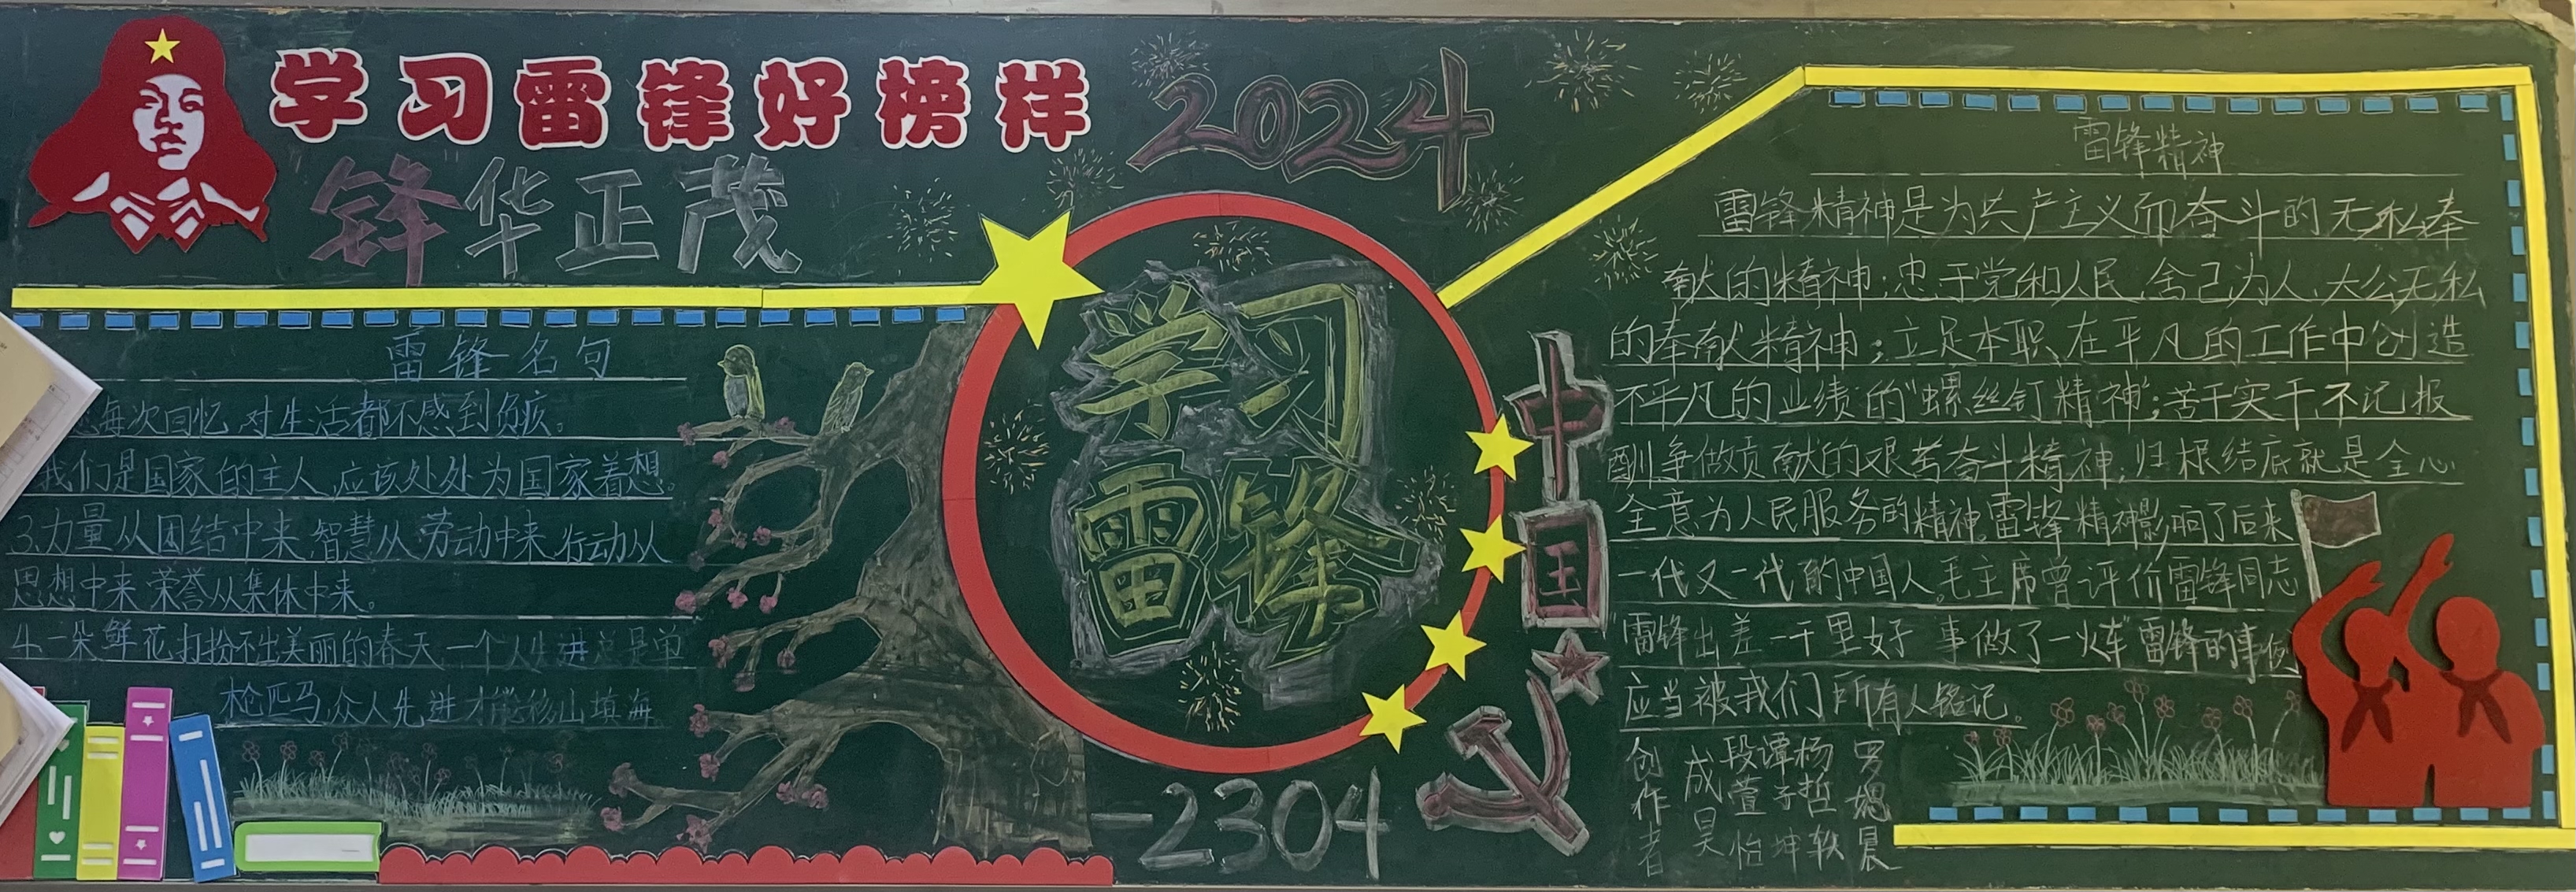 学习雷锋好榜样
2024
锋华正茂
雷锋名句
每次回忆对生活都不感到负疚。
我们是国家的主人应该处处为国家着想。
3.力量从团结中来智慧从劳动中来行动从
思想中来荣誉从集体中来。
4.一朵鲜花打扮不出美丽的春天一个人先进总是单
枪匹马众人先进才能移山填海
学习
雷锋
中国
-2304
雷锋精神
雷锋精神是为共产主义而奋斗的无私奉
献的精神;忠于党和人民,舍己为人、大公无私
的奉献精神;立足本职、在平凡的工作中创造
不平凡的业绩的“螺丝钉精神”;苦干实干、不记报
酬、争做贡献的艰苦奋斗精神,归根结底就是全心
全意为人民服务的精神。雷锋精神影响了后来
一代又一代的中国人。毛主席曾评价雷锋同志
雷锋出差一千里好事做了一火车”雷锋的事例
应当被我们所有人铭记。
创作者
成昊
段萱怡
谭子坤
杨哲轶
罗晨